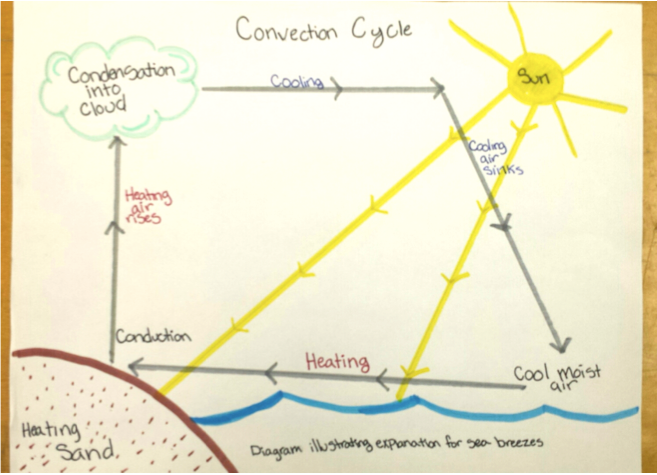 Convection Cycle
Sun
Condensation
into
Cloud
Cooling
Cooling
air
sinks
Heating
air
rises
Conduction
Heating
Cool moist
air
Heating
Sand.
Diagram illustrating explanation for sea breezes